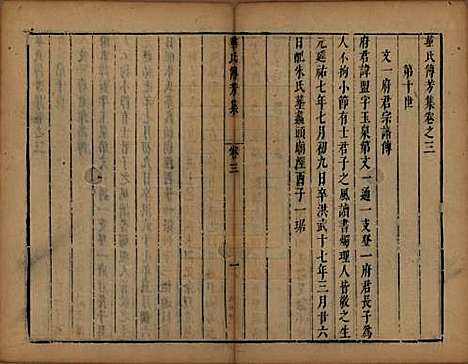 華氏傳芳集卷之三
第十世
文一府君宗譜傳
府君諱盟字玉泉第文一通一支登一府君長子為
人不拘小節有士君子之風讀書燭理人皆敬之生
元延祐七年七月初九日卒洪武十七年三月廿六
日配朱氏墓蠡頭廟涇酉子一琚
華氏傳芳集
卷三
一